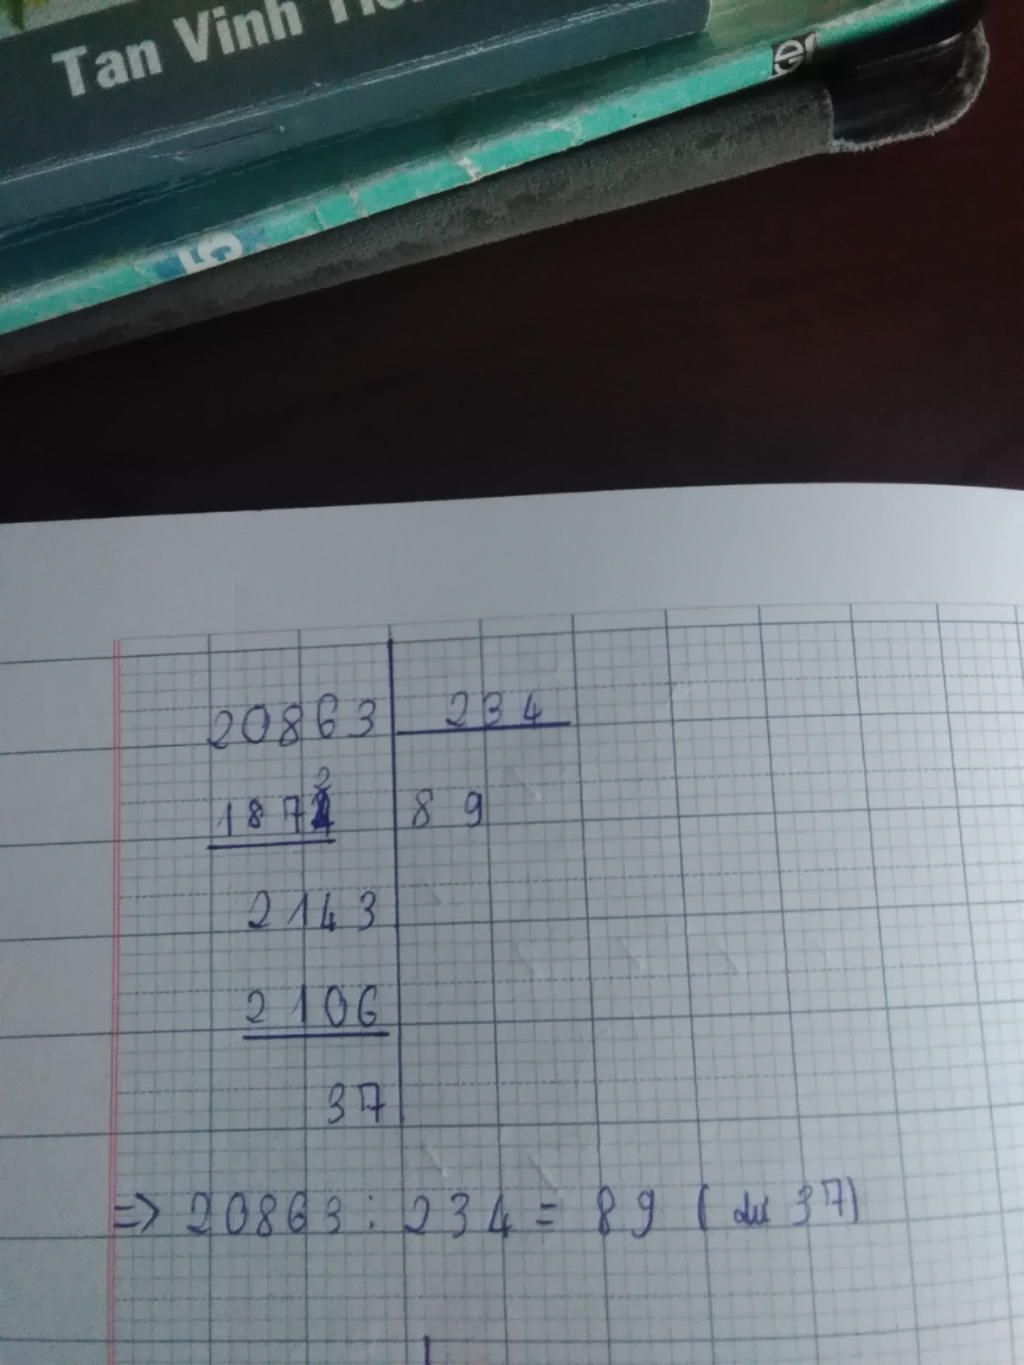 Tan Vinh
5
20863 234
1872 89
2143
2106
37
=> 20863 : 234 = 89 ( dư 37)